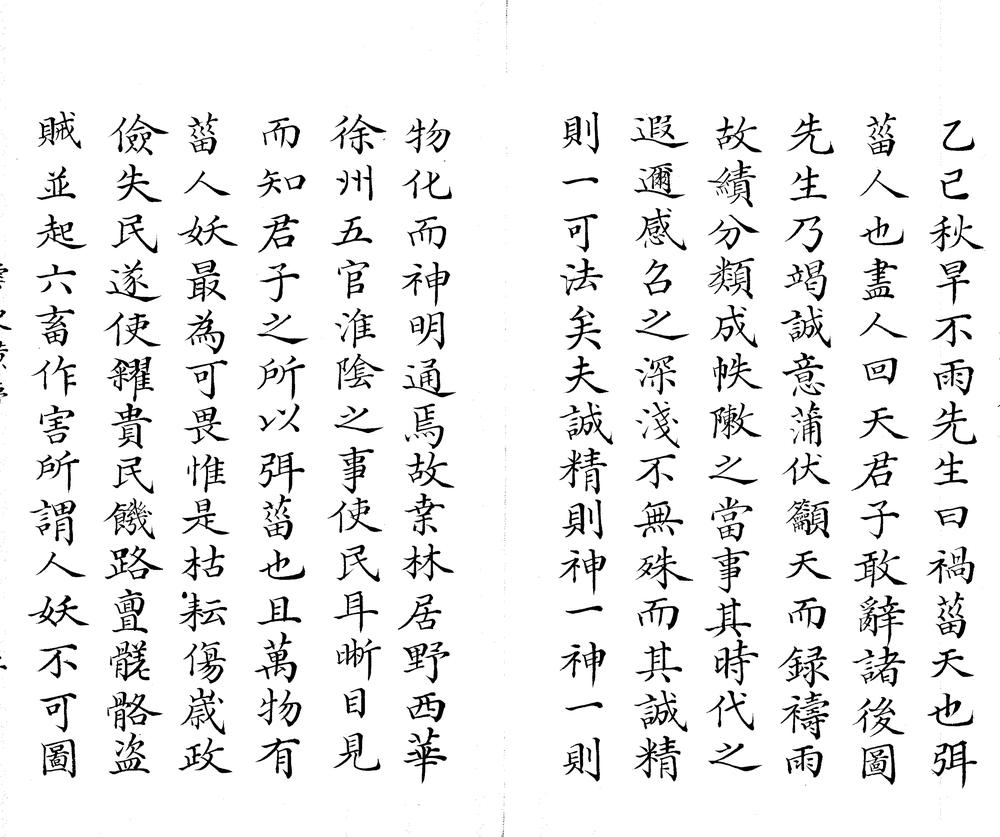 乙己秋旱不雨先生曰禍菑天也弭
菑人也盡人回天君子敢辭諸後圖
先生乃竭誠意蒲伏籲天而録禱雨
故績分類成帙敶之當事其時代之
遐邇感召之深淺不無殊而其誠精
則一可法矣夫誠精則神一神一則
物化而神明通焉故桒林居野西華
徐州五官淮陰之事使民耳晰目見
而知君子之所以弭菑也且萬物有
菑人妖最為可畏惟是枯耘傷嵗政
儉失民遂使糴貴民饑路亶髊骼盗
賊並起六畜作害所謂人妖不可圖